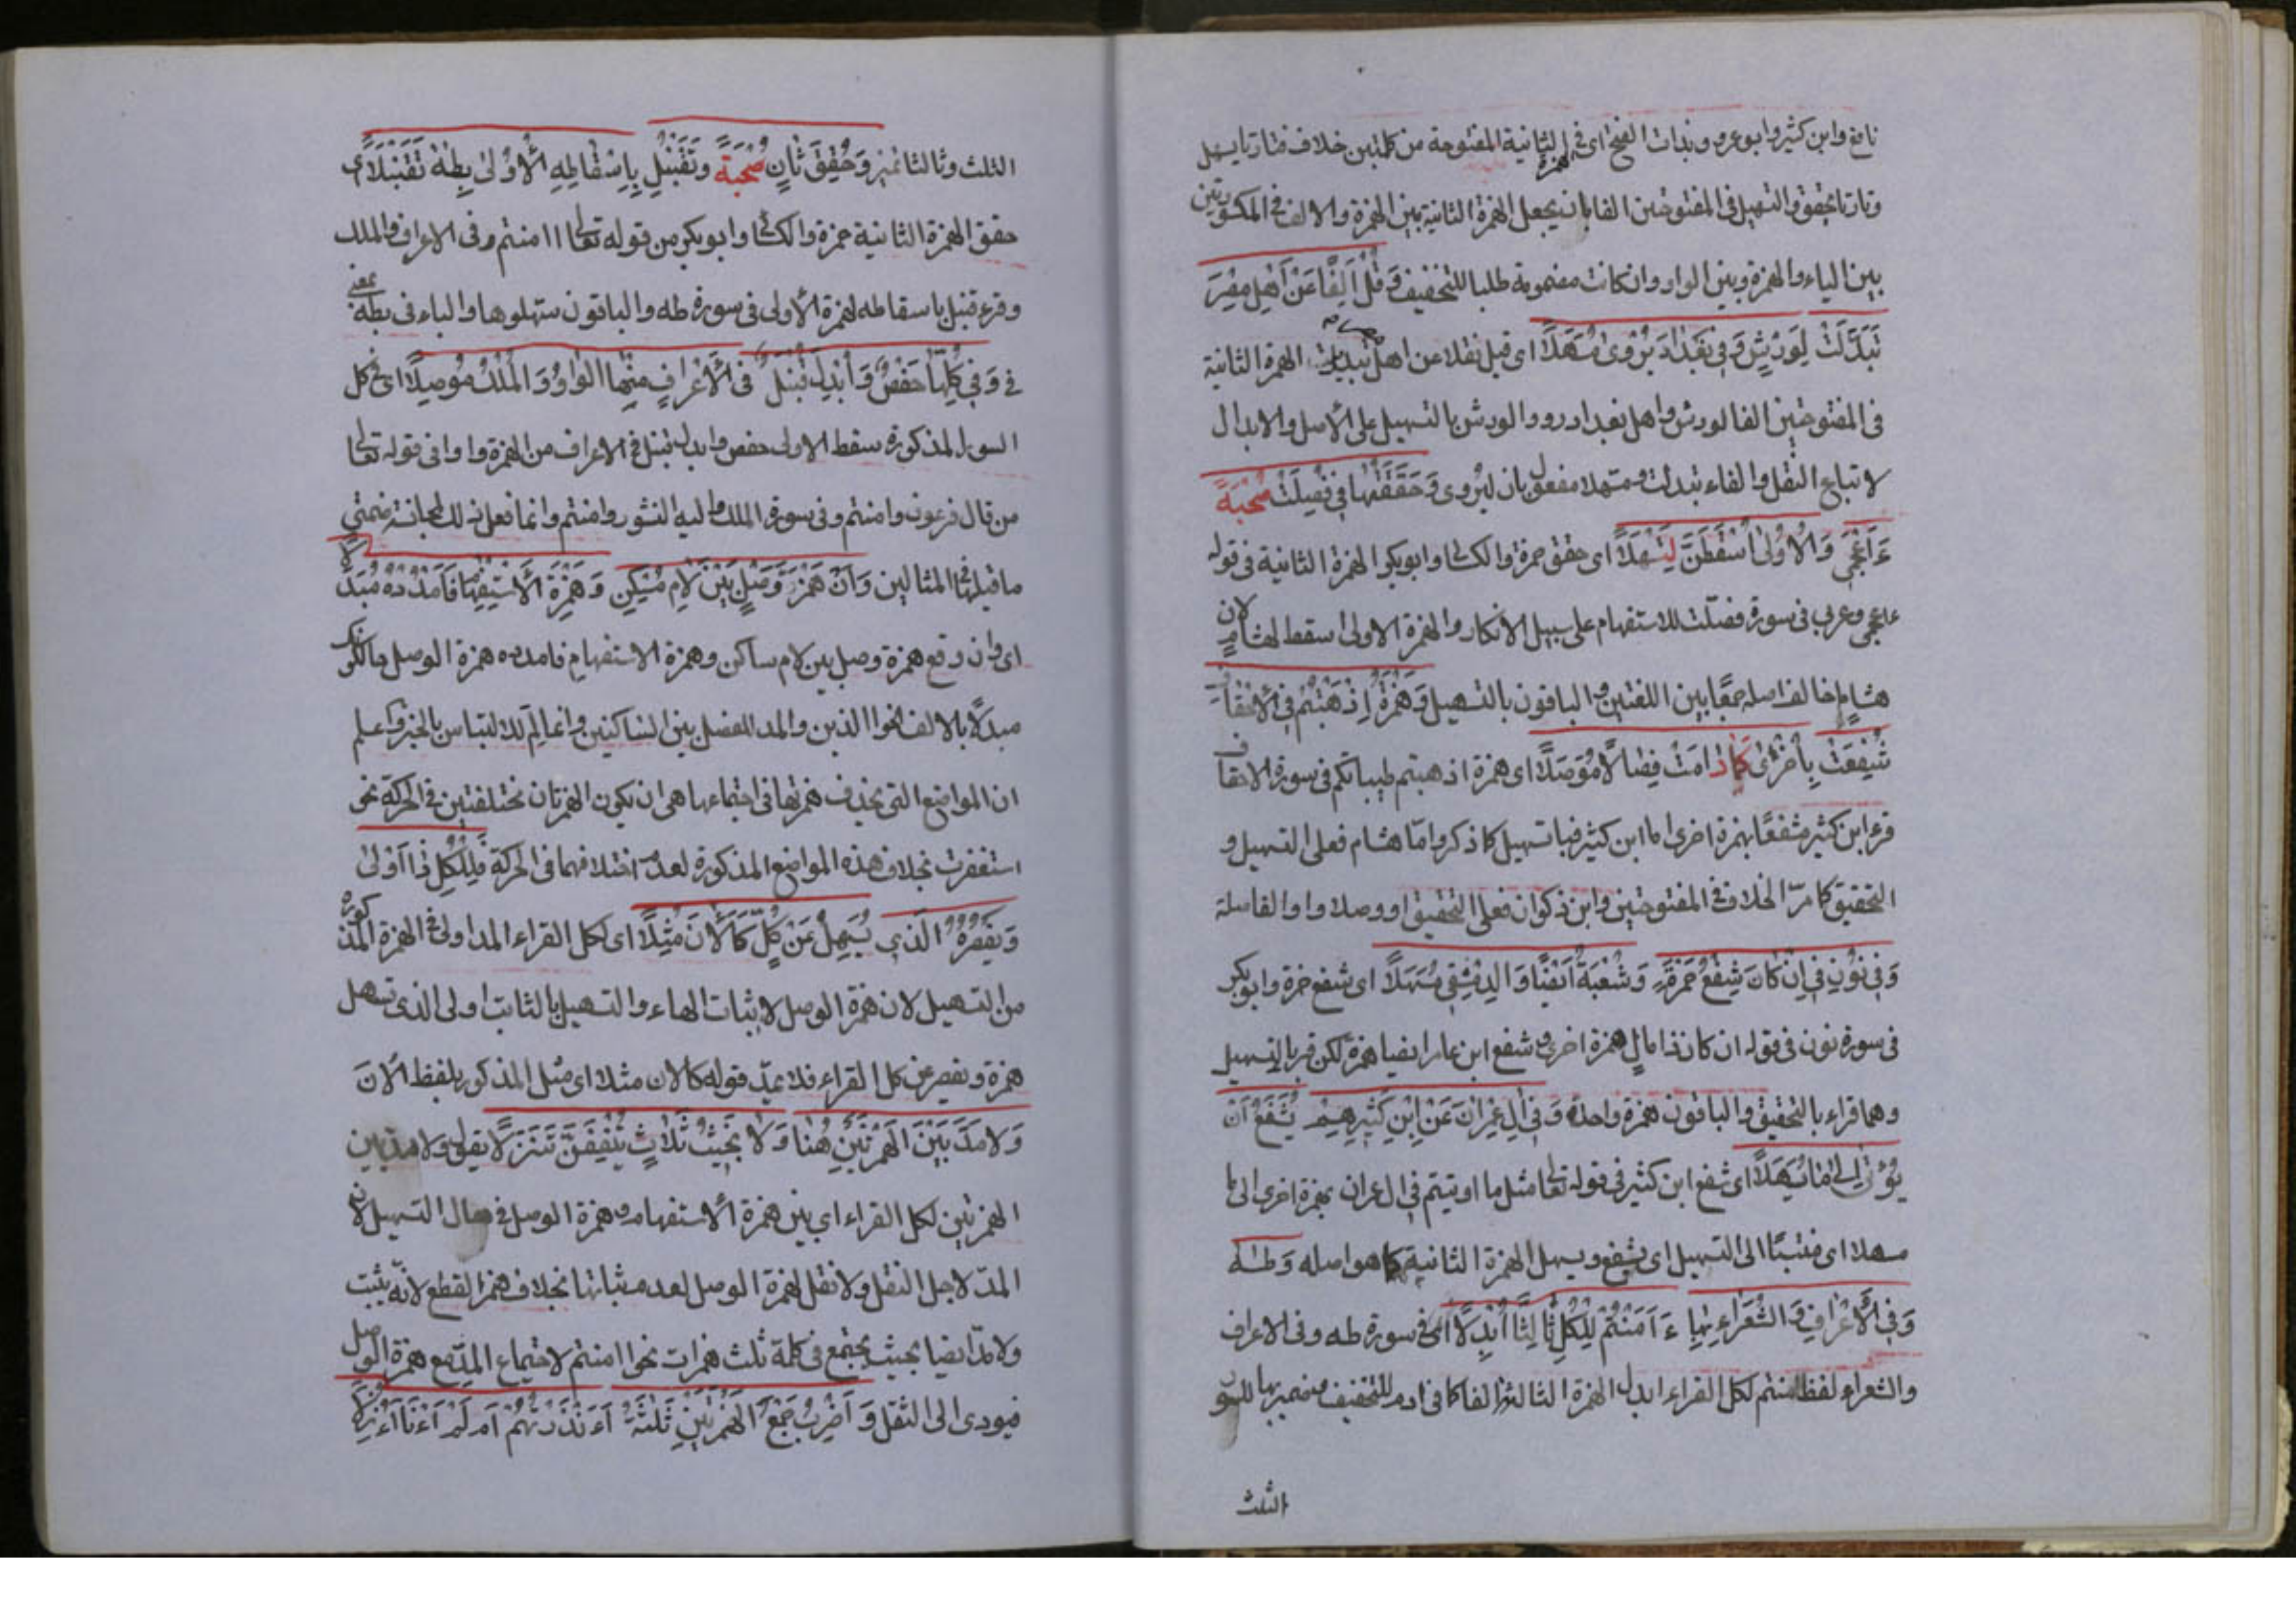 نافع وابن كثير وابو عمرو وبذات الفتح اى فى الهمزة الثانية المفتوحة من كلمتين خلاف فتارتا يسهل
وتارتا يحقق والتسهيل فى المفتوحتين الفا بان يجعل الهمزة الثانية بين الهمزة والالف فى المكسورتين
بين الياء والهمزة وبين الواو وان كانت مضمومة طلبا للتخفيف وَقُلْ اَلِفًا عَنْ اَهْلِ مِصْرَ
تَبَدَّلَتْ لِوَرْشٍ وَفِى بَغْدَادَ يُرْوٰى مُسَهَّلًا اى قيل نقلا عن اهل مصر تبديل الهمزة الثانية
فى المفتوحتين الفا لورش واهل بغداد رووا لورش بالتسهيل على الأصل والابدال
لاتباع النقل والفاء تبدلت ومسهلا مفعول بان ليروى وَحَقَّقَهَا فِى فُصِّلَتْ صُحْبَةٌ
ءَاَعْجَمِىٌّ وَالْاُوْلٰى اَسْقِطَنَّ لِتُسْهِلَا اى حقق حمزة والكسائى وابوبكر الهمزة الثانية فى قوله
ءاعجمى وعربى فى سورة فصّلت للاستفهام على سبيل الانكار والهمزة الاولى اسقط لهشام لان
هشام خالف اصله جمعًا بين اللغتين والباقون بالتسهيل وَهَمْزَةُ اِذْهَبْتُمْ فِى الْاَحْقَافِ
شُفِّعَتْ بِاُخْرٰى كَمَا دَامَتْ وِصَالًا مُوَصَّلًا اى همزة اذهبتم طيباتكم فى سورة الاحقاف
قرء ابن كثير مشفعًا بهمزة اخرى اما ابن كثير فبا تسهيل كما ذكر وامّا هشام فعلى التسهيل و
التحقيق كما مرّ الخلاف فى المفتوحتين وابن ذكوان فعلى التحقيق او وصلا واوا لفاصلة
وَفِى نُوْنِ فِى اِنْ كَانَ شَفَّعَ حَمْزَةٌ وَشُعْبَةُ اَيْضًا وَالدِّمَشْقِى مُسَهِّلًا اى شفع حمزة وابوبكر
فى سورة نون فى قوله ان كان ذا مال همزة اخرى وشفع ابن عامر ايضا همزة لكن قرء بالتسهيل
وهما قراء بالتحقيق والباقون همزة واحدة وَفِى اٰلِ عِمْرَانَ عَنْ اِبْنِ كَثِيْرِهِمْ يُشَفَّعُ اَنْ
يُؤْتٰى اِلٰى مَا تَسَهَّلَا اى شفع ابن كثير فى قوله تعالى مثل ما اوتيتم فى ال عمران بهمزة اخرى الى ما
سهلا اى منتسبًا الى التسهيل اى يشفع ويسهل الهمزة الثانية كما هو اصله وَطٰهٰ
وَفِى الْاَعْرَافِ وَالشُّعَرَاءِ بِهَا ءَاٰمَنْتُمْ لِلْكُلِّ ثَالِثًا اُبْدِلَا اى فى سورة طه وفى الاعراف
والشعراء لفظ امنتم لكل القراء ابدل الهمزة الثالثة الفا كما فى ادم للتخفيف وضمير بها للسور
الثلث
الثلث وثالثا تميز وَحُقِّقَ ثَانٍ صُحْبَةٌ وَلِقُنْبُلٍ بِاِسْقَاطِهِ الْاُوْلٰى بِطٰهٰ تُقُبِّلَا اى
حقق الهمزة الثانية حمزة والكسائى وابوبكر من قوله تعالى اامنتم وفى الاعراف والملك
وقرء قنبل باسقاطه لهمزة الاولى فى سورة طه والباقون ستهلوها والباء فى بطه بمعنى
فى وَفِى كُلِّهَا حَفْصٌ وَاَبْدَلَ قُنْبُلٌ فِى الْاَعْرَافِ مِنْهَا الْوَاوَ وَالْمُلْكِ مُوْصِلًا اى فى كل
السور المذكورة سقط الاولى حفص وابدل قنبل فى الاعراف من الهمزة واوا فى قوله تعالى
من قال فرعون وامنتم وفى سورة الملك واليه النشور وامنتم وانما فعل ذلك لمجانسة ضمتى
ما قبلها فى المثالين وَاِنْ هَمْزُ وَصْلٍ بَيْنَ لَامٍ مُسَكَّنٍ وَهَمْزَةِ الْاِسْتِفْهَامِ فَامْدُدْهُ مُبْدِلَا
اى وان وقع همزة وصل بين لام ساكن وهمزة الاستفهام فامدده همزة الوصل
مبدلًا بالالف نحو االذين والمد للفصل بين الساكنين وانما لم للالتباس بالخبر واعلم
ان المواضع التى يحذف همزتها فى اجتماعها هى ان يكون الهمزتان مختلفتين فى الحركة نحو
استغفرت بخلاف هذه المواضع المذكورة لعدم اختلافهما فى الحركة فَلِلْكُلِّ ذَا اَوْلٰى
وَيَقْصُرُهُ الَّذِى يُسَهِّلُ عَنْ كُلٍّ كَاَلْاٰنَ مُثِّلَا اى لكل القراء المد اولى فى الهمزة المذكورة
من التسهيل لان همزة الوصل لا يثبات الهاء والتسهيل بالثابت اولى الذى تسهل
همزة ويقصر عن كل القراء فلا يمدّ قوله كالان مثلا اى مثل المذكور بلفظ الأن
وَلَا مَدَّ بَيْنَ الْهَمْزَتَيْنِ هُنَا وَلَا بِحَيْثُ ثَلَاثٍ يَتَّفِقْنَ تَنَزُّلًا يقول ولا مد بين
الهمزتين لكل القراء اى بين همزة الاستفهام وهمزة الوصل فى حال التسهيل لان
المدّ لاجل النقل ولا نقل لهمزة الوصل لعدم ثباتها بخلاف همز القطع لانّه يثبت
ولا مدّ ايضا بحيث يجتمع فى كلمة ثلث همزات نحو اامنتم لاجتماع المدّ مع همزة الوصل
فيودى الى الثقل وَاَضْرُبُ جَمْعِ الْهَمْزَتَيْنِ ثَلٰثَةٌ ءَاَنْذَرْتَهُمْ اَمْ لَمْ اَءِنَّا اَءُنْزِلَا